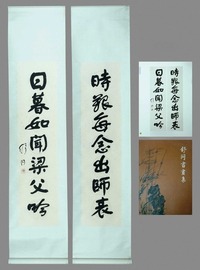 時艱每念出師表
日暮如聞梁父吟
時艱每念出師表
日暮如聞梁父吟
舒同書畫集